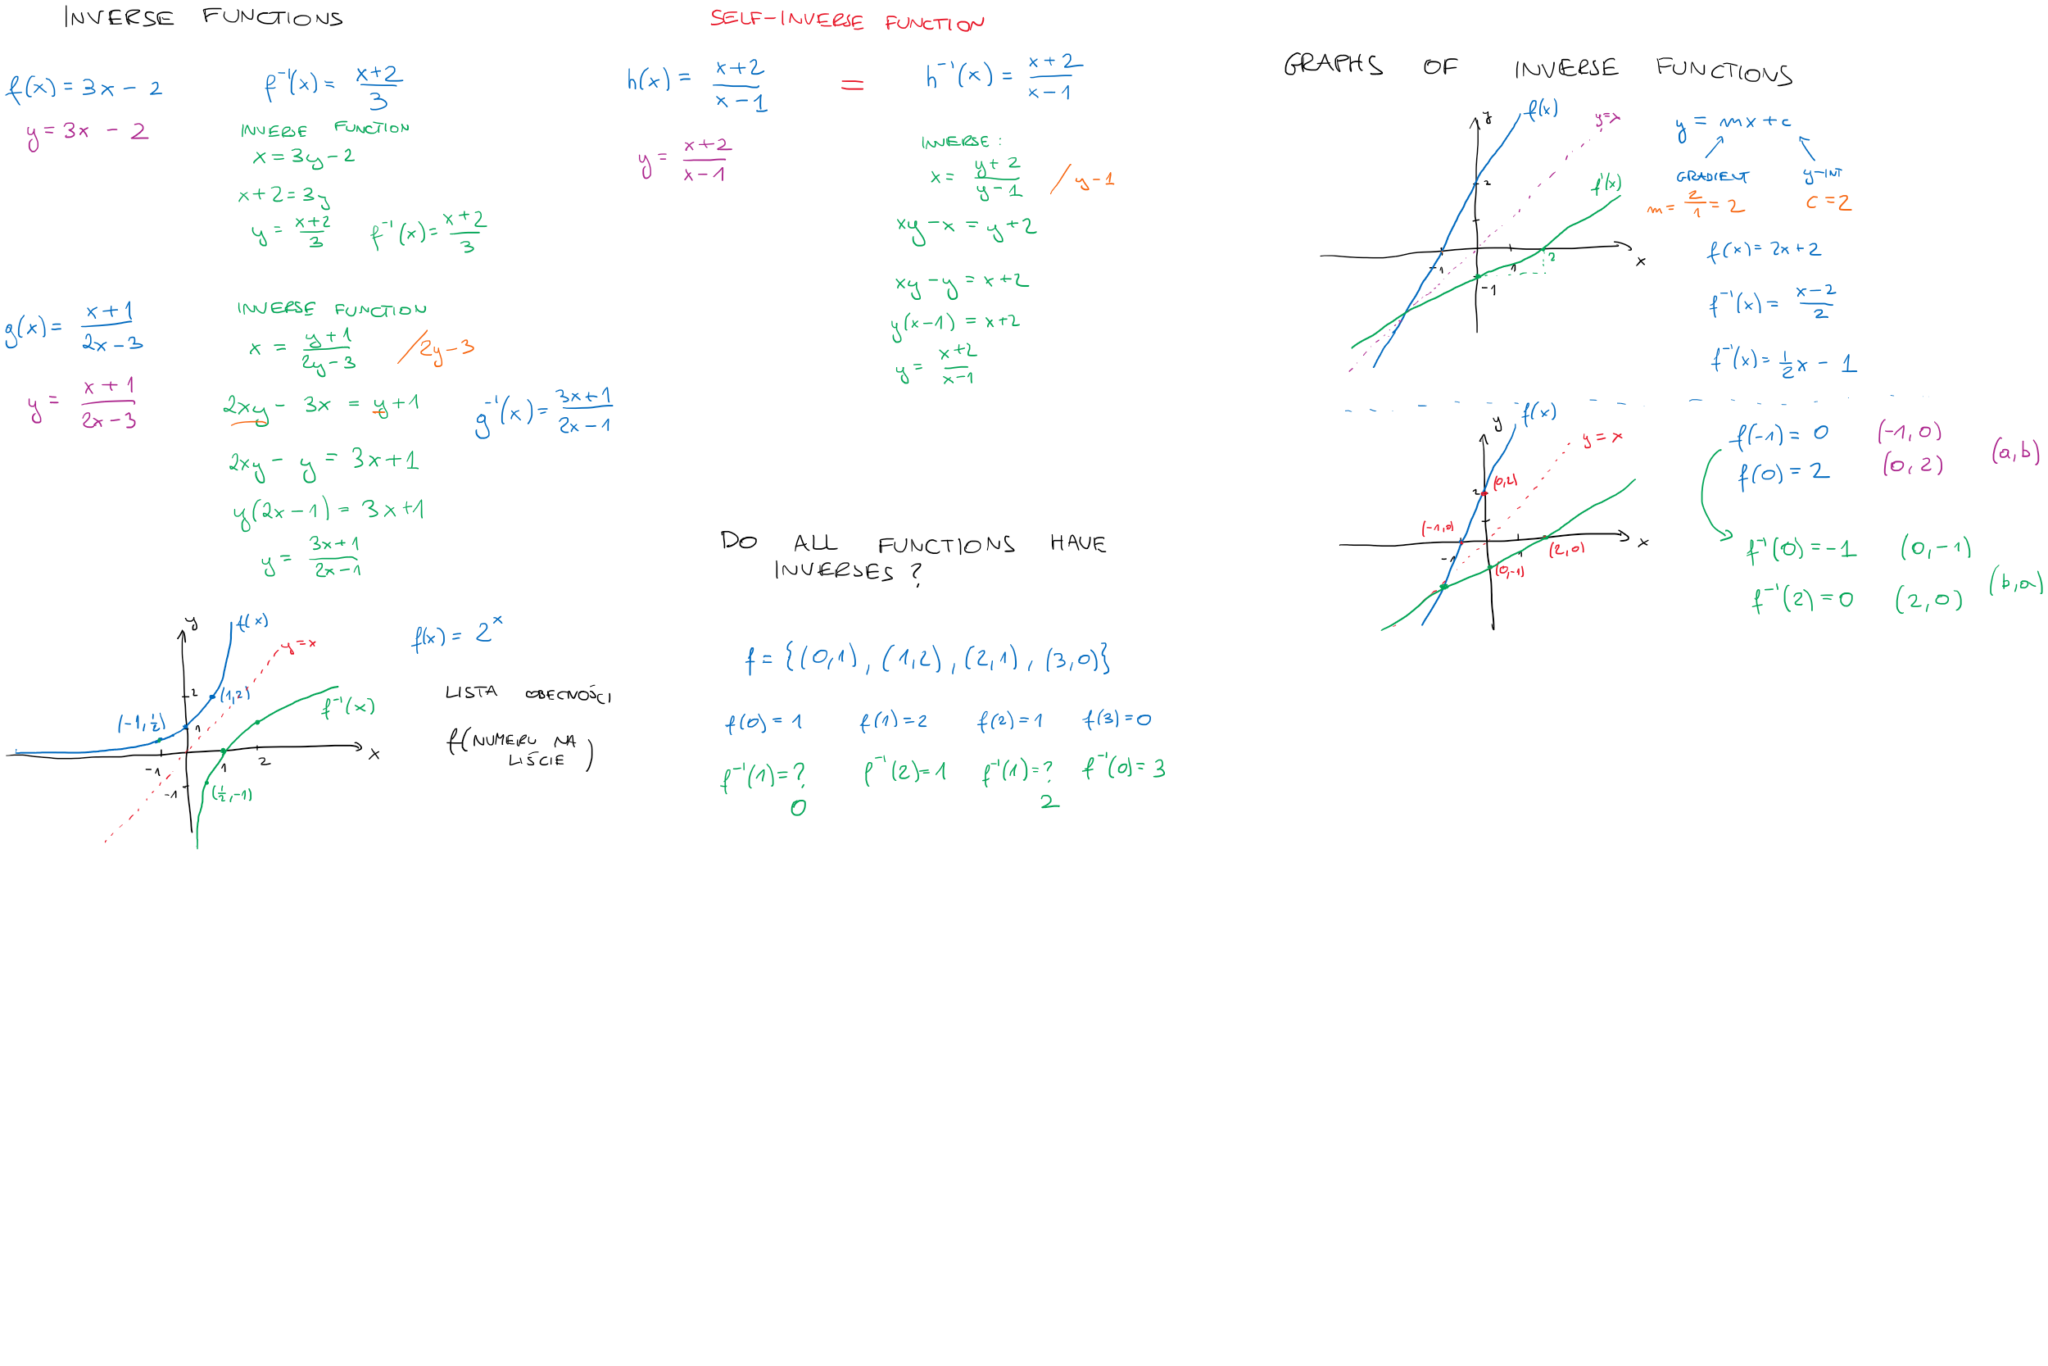 INVERSE FUNCTIONS
f(x) = 3x - 2
f⁻¹(x) = (x+2)/3
y = 3x - 2
INVERSE FUNCTION
x = 3y - 2
x + 2 = 3y
y = (x+2)/3
f⁻¹(x) = (x+2)/3
g(x) = (x+1)/(2x-3)
INVERSE FUNCTION
x = (y+1)/(2y-3) /2y-3
y = (x+1)/(2x-3)
2xy - 3x = y + 1
g⁻¹(x) = (3x+1)/(2x-1)
2xy - y = 3x + 1
y(2x-1) = 3x+1
y = (3x+1)/(2x-1)
y
f(x)
y=x
(1,2)
(-1,½)
f⁻¹(x)
2
1
-1
1
2
x
-1
(½,-1)
f(x) = 2ˣ
LISTA OBECNOŚCI
f(NUMERU NA
LIŚCIE)
SELF-INVERSE FUNCTION
h(x) = (x+2)/(x-1) = h⁻¹(x) = (x+2)/(x-1)
y = (x+2)/(x-1)
INVERSE:
x = (y+2)/(y-1) /y-1
xy - x = y + 2
xy - y = x + 2
y(x-1) = x+2
y = (x+2)/(x-1)
DO ALL FUNCTIONS HAVE
INVERSES?
f = {(0,1), (1,2), (2,1), (3,0)}
f(0) = 1 f(1) = 2 f(2) = 1 f(3) = 0
f⁻¹(1) = ? f⁻¹(2) = 1 f⁻¹(1) = ? f⁻¹(0) = 3
0 2
GRAPHS OF INVERSE FUNCTIONS
y
f(x)
y=x
f⁻¹(x)
2
-1
1
2
x
-1
y = mx + c
GRADIENT y-INT
m = 2/1 = 2 c = 2
f(x) = 2x + 2
f⁻¹(x) = (x-2)/2
f⁻¹(x) = ½x - 1
y
f(x)
y = x
(0,2)
2
(-1,0)
-1
1
(2,0)
x
(0,-1)
f(-1) = 0 (-1,0)
f(0) = 2 (0,2) (a,b)
f⁻¹(0) = -1 (0,-1)
f⁻¹(2) = 0 (2,0) (b,a)